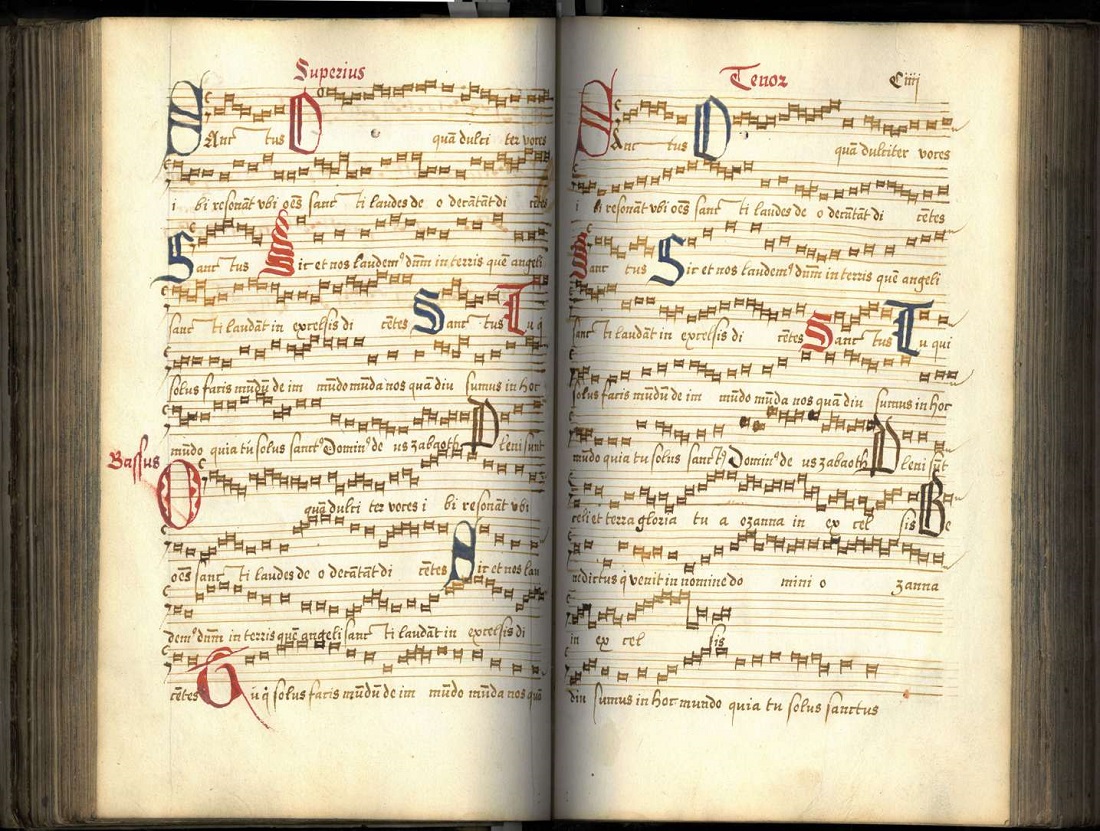 Superius
SAnc tus O quã dulci ter voces
i bi resonãt vbi oẽs sanc ti laudes de o decãtãt di cẽtes
Sanc tus Sic et nos laudem⁹ dñm in terris quẽ angeli
sanc ti laudãt in excelsis di cẽtes Sanc tus Tu q
solus facis mũdũ de im mũdo mũda nos quã diu sumus in hoc
mũdo quia tu solus sanct⁹ Domin⁹ de us zabaoth Pleni sunt
Bassus
O quã dulci ter voces i bi resonãt vbi
oẽs sanc ti laudes de o decãtãt di cẽtes Sic et nos lau
dem⁹ dñm in terris quẽ angeli sanc ti laudãt in excelsis di
cẽtes Tu q̃ solus facis mũdũ de im mũdo mũda nos quã
Tenor
Ciiij
SAnc tus O quã dulciter voces
i bi resonãt vbi oẽs sanc ti laudes de o decãtãt di cẽtes
Sanc tus Sic et nos laudem⁹ dñm in terris quẽ angeli
sanc ti laudãt in excelsis di cẽtes Sanc tus Tu qui
solus facis mũdũ de im mũdo mũda nos quã diu sumus in hoc
mũdo quia tu solus sanct⁹ Domin⁹ de us zabaoth Pleni sũt
celi et terra gloria tu a ozanna in ex cel sis Be
nedictus q̇ venit in nomine do mini o zanna
in ex cel sis
diu sumus in hoc mundo quia tu solus sanctus